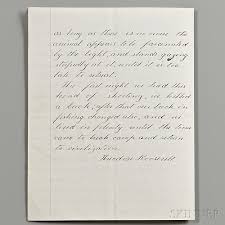 as long as there is no noise the
animal appears to be fascinated
by the light, and stands gazing
stupidly at it, until it is too
late to retreat.
The first night we tried this
kind of shooting, we killed
a buck; after that our luck in
fishing changed also, and we
lived in plenty until the time
came to break camp and return
to civilization.
Theodore Roosevelt
SKINNER